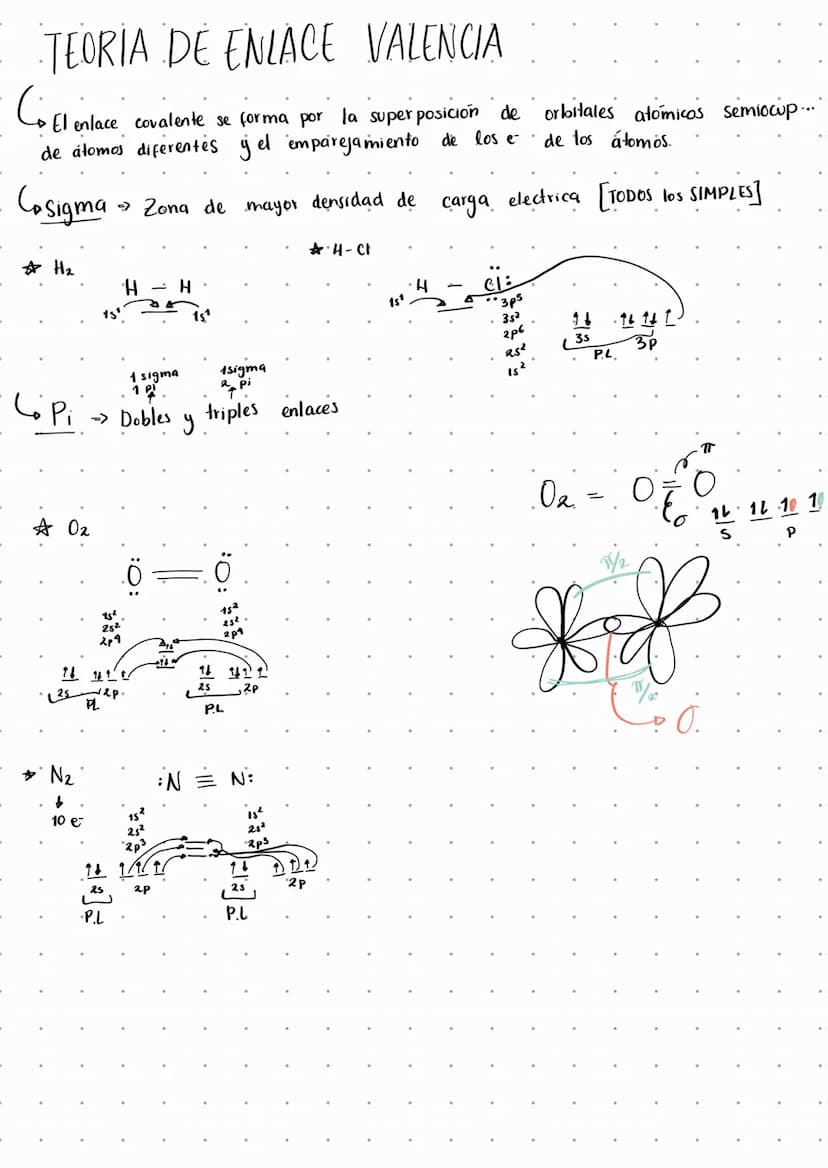 TEORIA DE ENLACE VALENCIA
↳ El enlace covalente se forma por la superposición de orbitales atómicos semiocup...
de átomos diferentes y el emparejamiento de los e⁻ de los átomos.
↳ Sigma → Zona de mayor densidad de carga electrica [TODOS los SIMPLES]
☆ H₂
★ H-Cl
H – H
1s¹ 1s¹
H – Cl:
1s¹
3p⁵
3s²
2p⁶
2s²
1s²
↑↓ ↑↓ ↑↓ ↑
3s 3p
P.L.
1 sigma 1 sigma
1 pi 2 pi
↳ Pi → Dobles y triples enlaces
O₂ = O = O
π
σ
↑↓ ↑↓ ↑ ↑
S P
☆ O₂
Ö = Ö
1s² 1s²
2s² 2s²
2p⁴ 2p⁴
↑↓ ↑↓ ↑ ↑ ↑↓ ↑↓ ↑ ↑
2s 2p 2s 2p
PL P.L
π/2
π/2
σ
☆ N₂ :N ≡ N:
↓
10 e⁻
1s² 1s²
2s² 2s²
2p³ 2p³
↑↓ ↑ ↑ ↑ ↑↓ ↑ ↑ ↑
2s 2p 2s 2p
P.L P.L